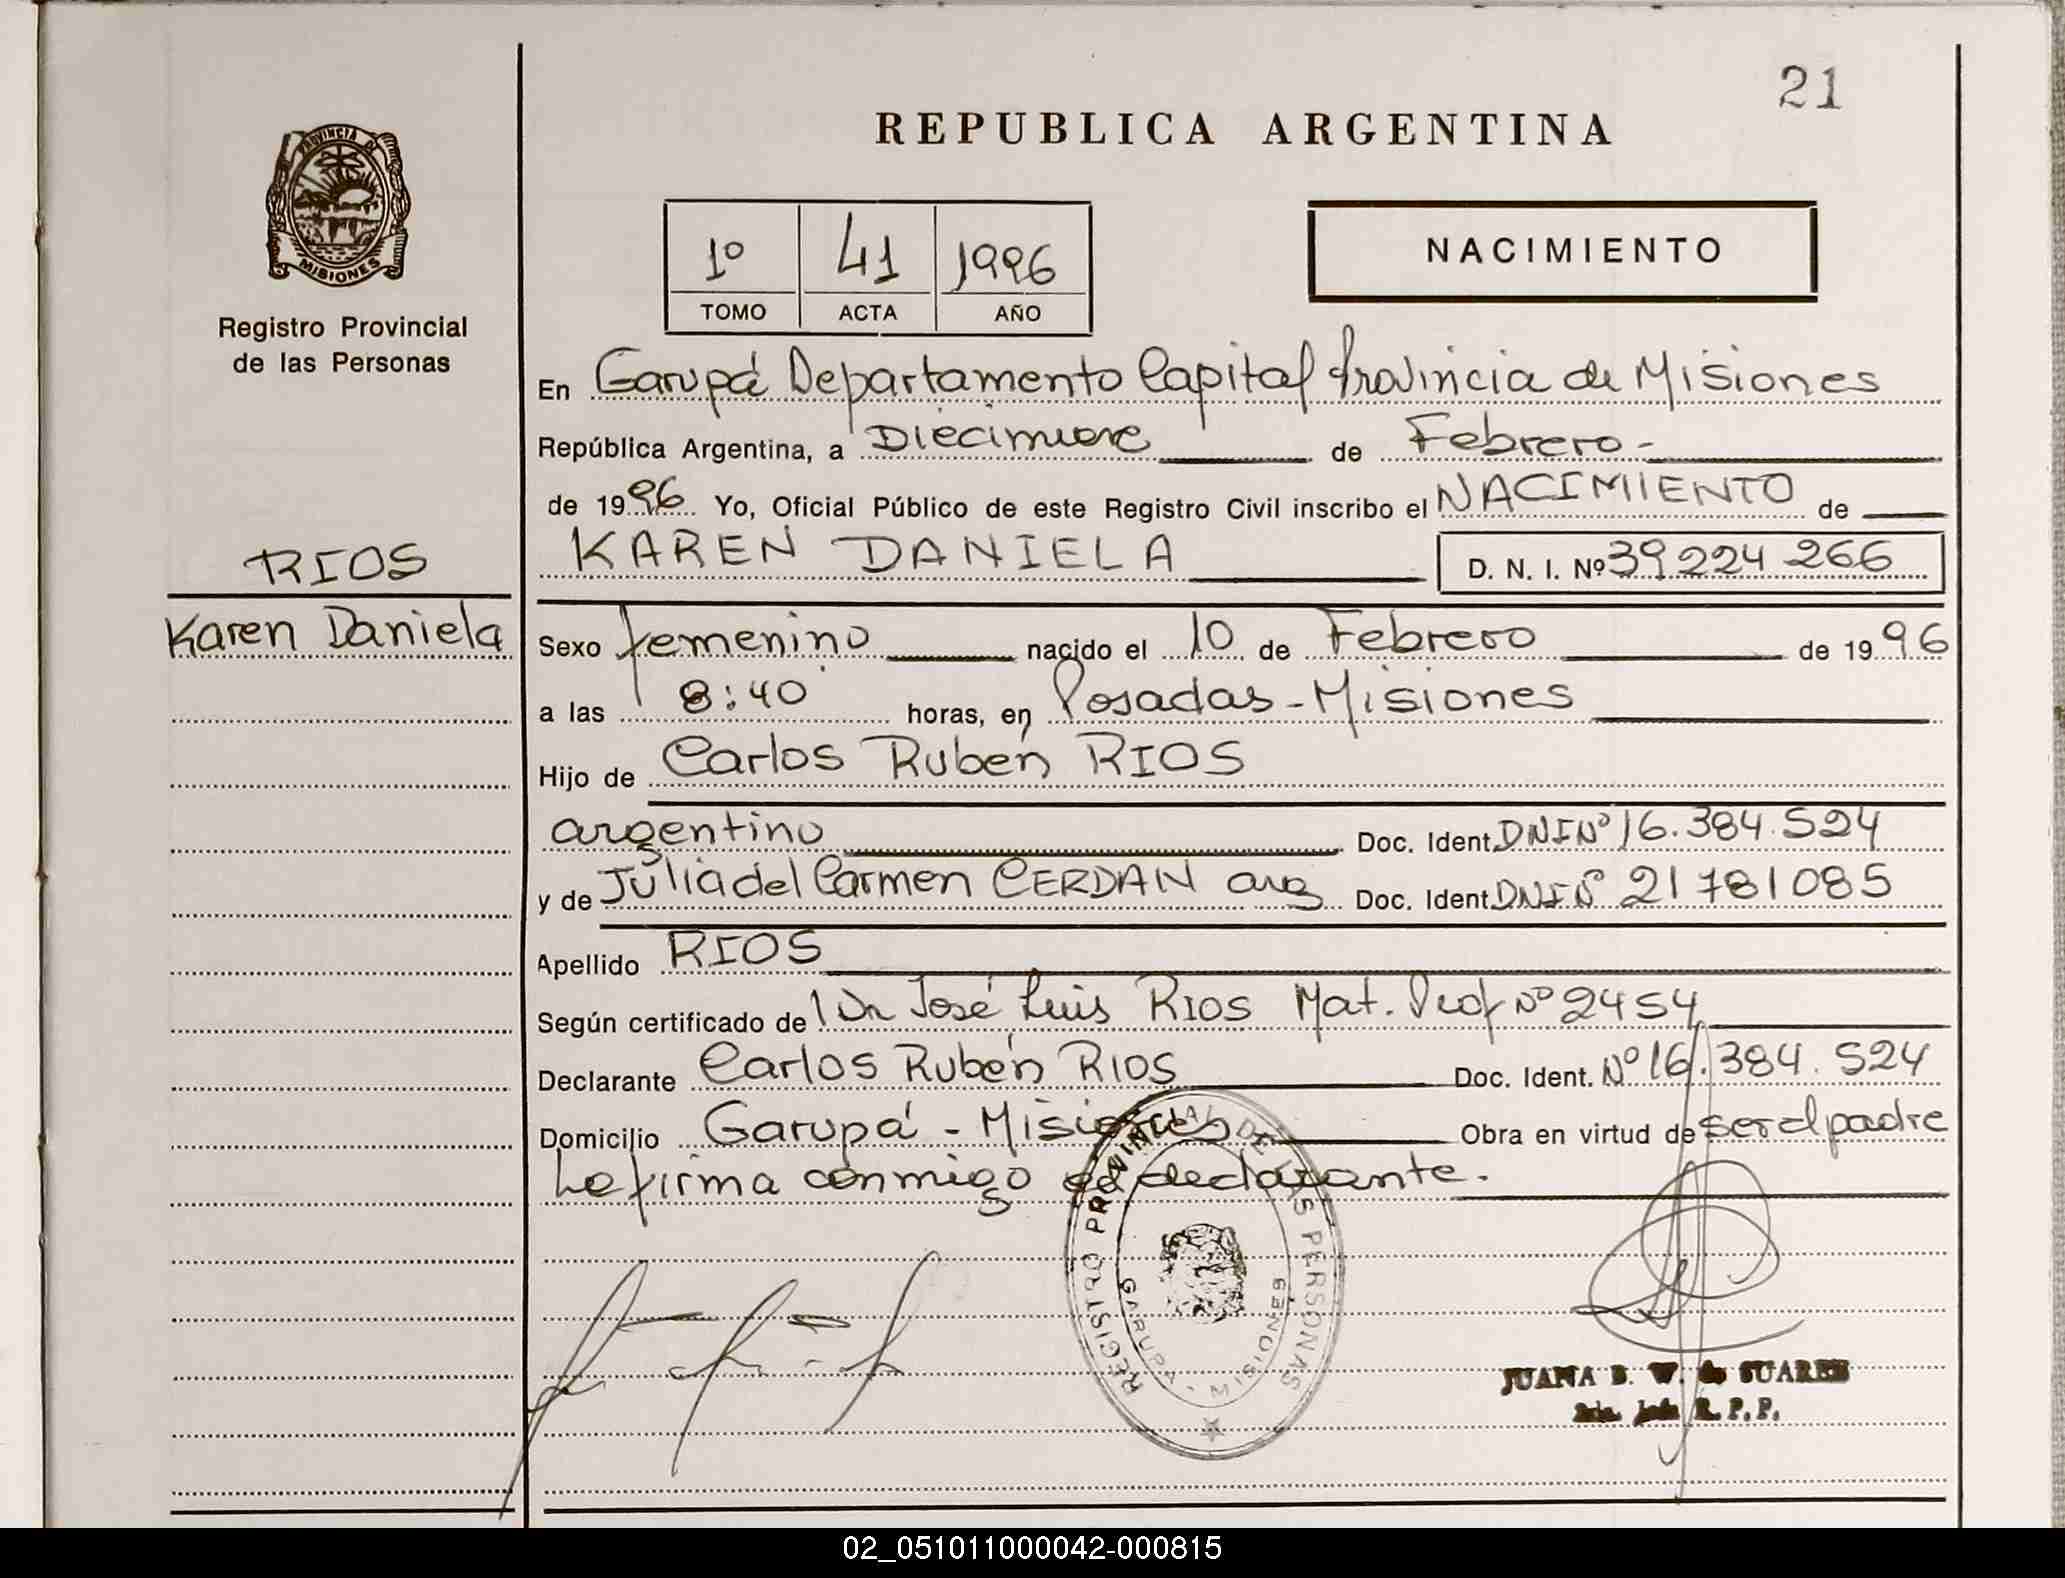 21
REPUBLICA ARGENTINA
PROVINCIA DE
MISIONES
Registro Provincial
de las Personas
1º 41 1996
TOMO ACTA AÑO
NACIMIENTO
En Garupá Departamento Capital Provincia de Misiones
República Argentina, a Diecinueve de Febrero-
de 1996 Yo, Oficial Público de este Registro Civil inscribo el NACIMIENTO de
KAREN DANIELA D. N. I. Nº 39224266
RIOS
Karen Daniela
Sexo femenino nacido el 10 de Febrero de 1996
a las 8:40 horas, en Posadas-Misiones
Hijo de Carlos Rubén RIOS
argentino Doc. Ident. DNI Nº 16.384.524
y de Julia del Carmen CERDAN arg Doc. Ident. DNI Nº 21781085
Apellido RIOS
Según certificado de Dr José Luis RIOS Mat. Prof Nº 2454
Declarante Carlos Rubén RIOS Doc. Ident. Nº 16.384.524
Domicilio Garupá - Misiones Obra en virtud de ser el padre
Lo firma conmigo el declarante.
REGISTRO PROVINCIAL DE LAS PERSONAS
GARUPA - MISIONES
JUANA B. W. de SUAREZ
R. P. P.
02_051011000042-000815